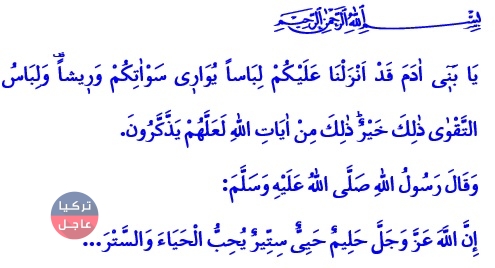 بِسْمِ اللهِ الرَّحْمٰنِ الرَّحِيمِ
يَا بَنٓي اٰدَمَ قَدْ اَنْزَلْنَا عَلَيْكُمْ لِبَاساً يُوَارٖي سَوْاٰتِكُمْ وَرٖيشاًۜ وَلِبَاسُ
التَّقْوٰى ذٰلِكَ خَيْرٌۜ ذٰلِكَ مِنْ اٰيَاتِ اللهِ لَعَلَّهُمْ يَذَّكَّرُونَ.
وَقَالَ رَسُولُ اللهِ صَلَّى اللهُ عَلَيْهِ وَسَلَّمَ:
تركيا
عاجل
إِنَّ اللَّهَ عَزَّ وَجَلَّ حَلِيمٌ حَيِيٌّ سِتِّيرٌ يُحِبُّ الْحَيَاءَ وَالسَّتْرَ...